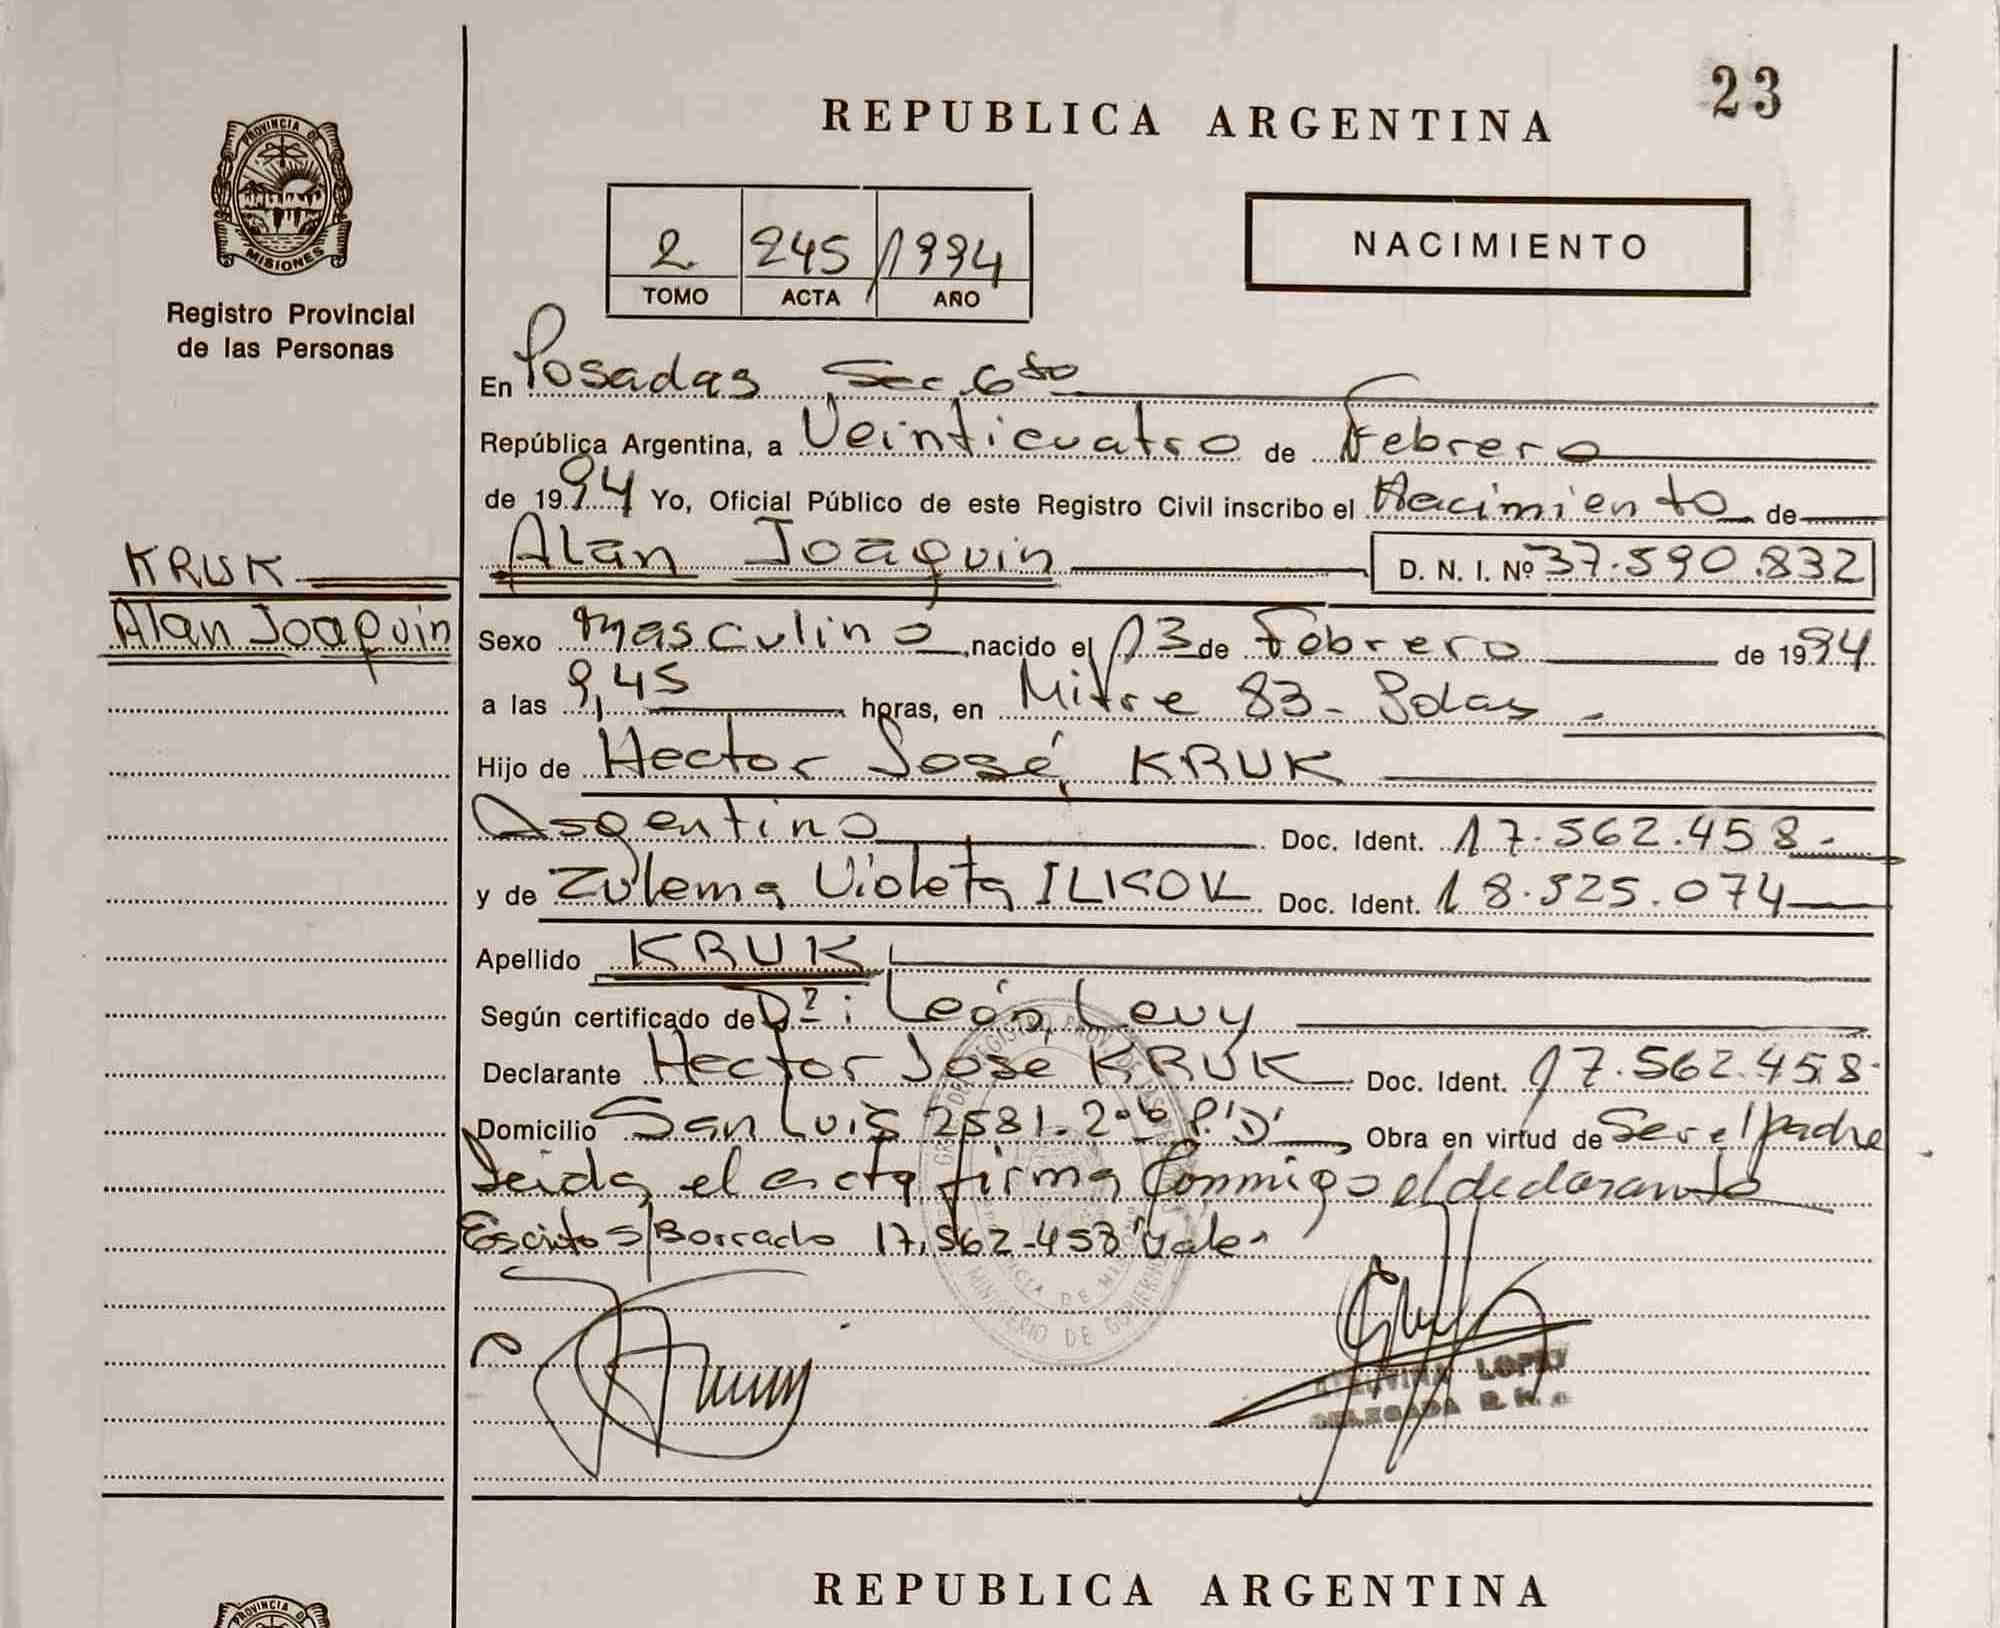 23
REPUBLICA ARGENTINA
PROVINCIA DE
MISIONES
Registro Provincial
de las Personas
2 245 1994
TOMO ACTA AÑO
NACIMIENTO
En Posadas Sec. 6ta
República Argentina, a Veinticuatro de Febrero
de 1994 Yo, Oficial Público de este Registro Civil inscribo el Nacimiento de
Alan Joaquin D. N. I. Nº 37.590.832
KRUK
Alan Joaquin
Sexo Masculino, nacido el 13 de Febrero de 1994
a las 9,45 horas, en Mitre 83 - Pdas
Hijo de Hector José KRUK
Argentino Doc. Ident. 17.562.458.-
y de Zulema Violeta ILKOV Doc. Ident. 18.525.074
Apellido KRUK
Según certificado de Dr: León Levy
Declarante Hector José KRUK Doc. Ident. 17.562.458-
Domicilio San Luis 2581-2º P."D" Obra en virtud de Ser el padre
Leida el acta firma Conmigo el declarante
Escrito s/Borrado 17.562-458 "Vale"
MINISTERIO DE GOBIERNO
LOPEZ
DELEGADA
REPUBLICA ARGENTINA
PROVINCIA DE